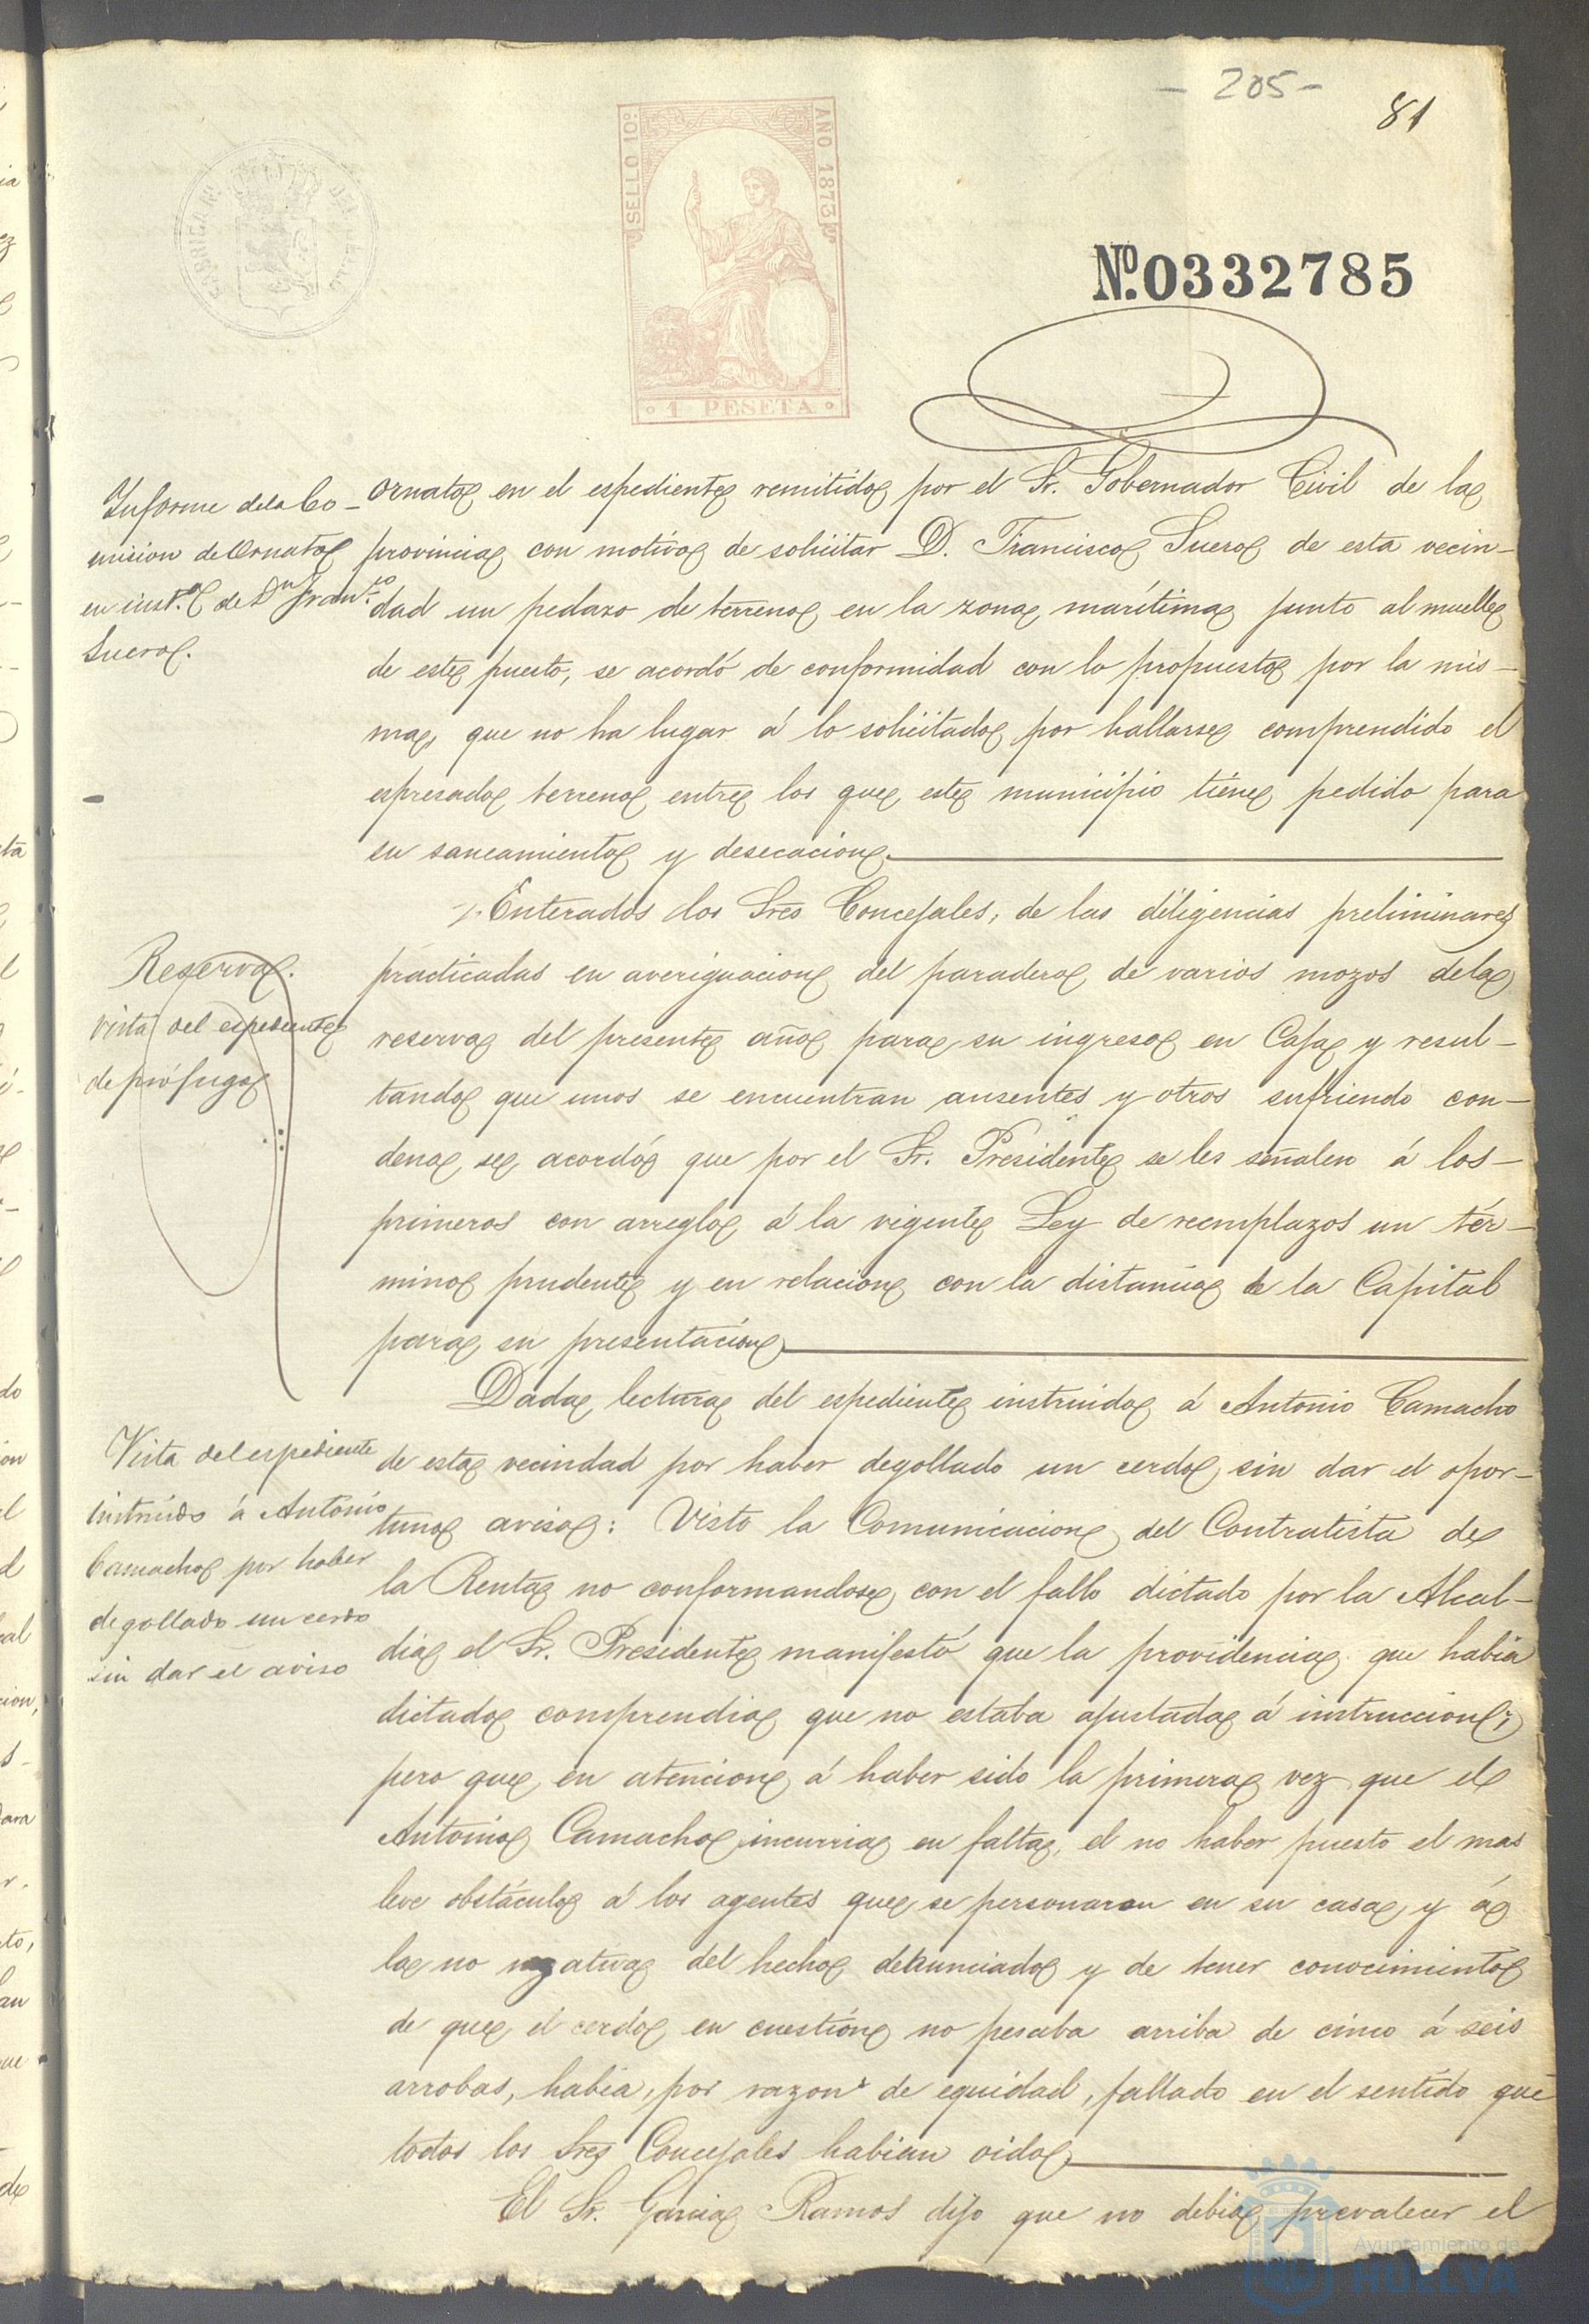 - 205 -
81
SELLO 10º
AÑO 1873
1 PESETA
Nº. 0332785
Informe de la Co-
mision de Ornato
en inst.ª de Dn Franco
Suero.
ornato en el espediente remitido por el Sr. Gobernador Civil de la
provincia con motivo de solicitar D. Francisco Suero de esta vecin-
dad un pedazo de terreno en la zona marítima junto al muelle
de este puerto, se acordó de conformidad con lo propuesto por la mis-
ma, que no ha lugar á lo solicitado por hallarse comprendido el
espresado terreno entre los que este municipio tiene pedido para
su saneamiento y desecacion.
Reserva.
vista del espediente
de prófugo
Enterados los Sres Concejales, de las diligencias preliminares
practicadas en averiguacion del paradero de varios mozos de la
reserva del presente año para su ingreso en Caja y resul-
tando que unos se encuentran ausentes y otros sufriendo con-
dena, se acordó que por el Sr. Presidente se les señalen á los
primeros con arreglo á la vigente Ley de reemplazos un tér-
mino prudente y en relacion con la distancia de la Capital
para su presentacion
Vista del espediente
instruido á Antonio
Camacho por haber
degollado un cerdo
sin dar el aviso
Dada lectura del espediente instruido á Antonio Camacho
de esta vecindad por haber degollado un cerdo sin dar el opor-
tuno aviso: Visto la Comunicacion del Contratista de
la Renta no conformandose con el fallo dictado por la Alcal-
dia el Sr. Presidente manifestó que la providencia que habia
dictado comprendia que no estaba ajustada á instruccion;
pero que en atencion á haber sido la primera vez que el
Antonio Camacho incurria en falta, el no haber puesto el mas
leve obstáculo á los agentes que se personaron en su casa y á
la no negativa del hecho denunciado y de tener conocimiento
de que el cerdo en cuestion no pesaba arriba de cinco á seis
arrobas, habia, por razon de equidad, fallado en el sentido que
todos los Sres Concejales habian oido
El Sr. Garcia Ramos dijo que no debia prevalecer el
Ayuntamiento de
HUELVA